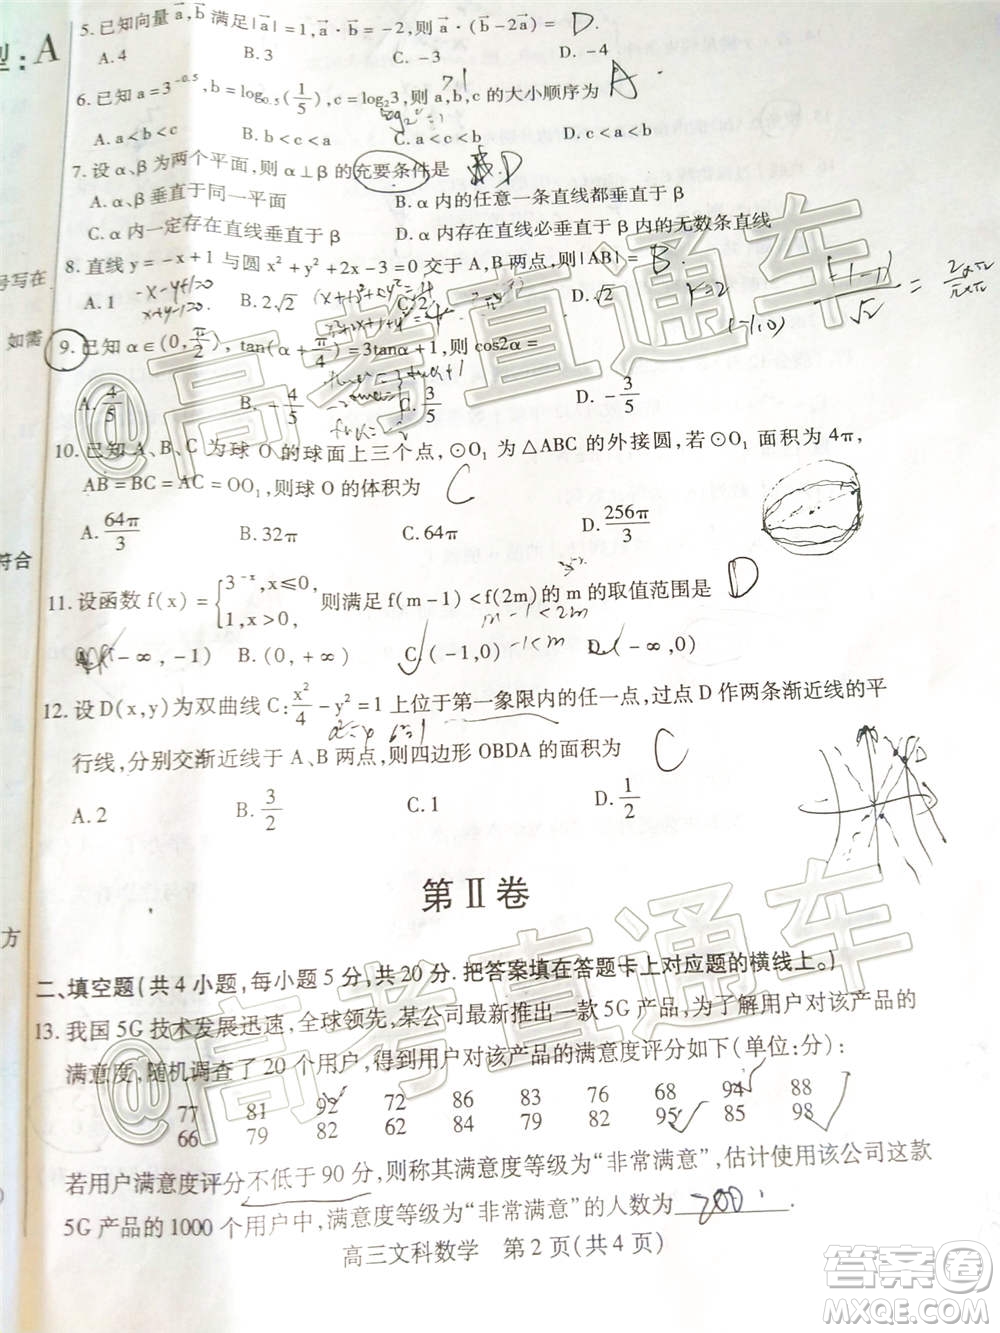 型:A
5.已知向量a,b满足|a|=1,a·b=-2,则a·(b-2a)= D.
A.4 B. C.-3 D.-4
6.已知a=3^-0.5,b=log₀.₅(1/5),c=log₂3,则a,b,c的大小顺序为 A
A.a<b<c B. C.c<a<b D.a<c<b
7.设α、β为两个平面,则α⊥β的充要条件是 D
A.α、β垂直于同一平面 B.α内的任意一条直线都垂直于β
C.α内一定存在直线垂直于β D.α内存在直线必垂直于β内的无数条直线
8.直线y=-x+1与圆x²+y²+2x-3=0交于A,B两点,则|AB|= B.
A.1 B.2√2 D.√2 r=2
号写在
如需
9.已知α∈(0,π/2),tan(α+π/4)=3tanα+1,则cos2α=
A.4/5 B.-4/5 C.3/5 D.-3/5
10.已知A、B、C为球O的球面上三个点,⊙O₁为△ABC的外接圆,若⊙O₁面积为4π,
AB=BC=AC=OO₁,则球O的体积为 C
A.64π/3 B.32π C.64π D.256π/3
符合
11.设函数f(x)={3^-x,x≤0, 1,x>0, 则满足f(m-1)<f(2m)的m的取值范围是 D
m-1<2m
-1<m
(-∞,-1) B.(0,+∞) C(-1,0) (-∞,0)
12.设D(x,y)为双曲线C:x²/4-y²=1上位于第一象限内的任一点,过点D作两条渐近线的平
行线,分别交渐近线于A、B两点,则四边形OBDA的面积为 C
A.2 B.3/2 C.1 D.1/2
第Ⅱ卷
方
二、填空题(共4小题,每小题5分,共20分.把答案填在答题卡上对应题的横线上。)
13.我国5G技术发展迅速,全球领先,某公司最新推出一款5G产品,为了解用户对该产品的
满意度,随机调查了20个用户,得到用户对该产品的满意度评分如下(单位:分):
77 81 92 72 86 83 76 68 94 88
66 79 82 82 74 79 68 95 85 98
若用户满意度评分不低于90分,则称其满意度等级为“非常满意”,估计使用该公司这款
5G产品的1000个用户中,满意度等级为“非常满意”的人数为 200.
高三文科数学 第2页(共4页)
@高考直通车
@高考直通车
答案圈
MXQE.COM